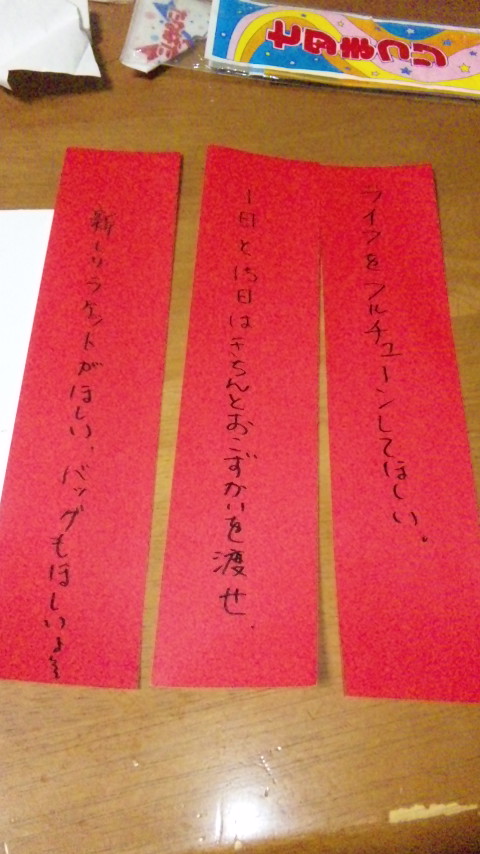 七夕まつり
ライフをフルチューンしてほしい。
1日と15日はきちんとおこずかいを渡せ.
新しいラケットがほしい、バッグもほしいよ